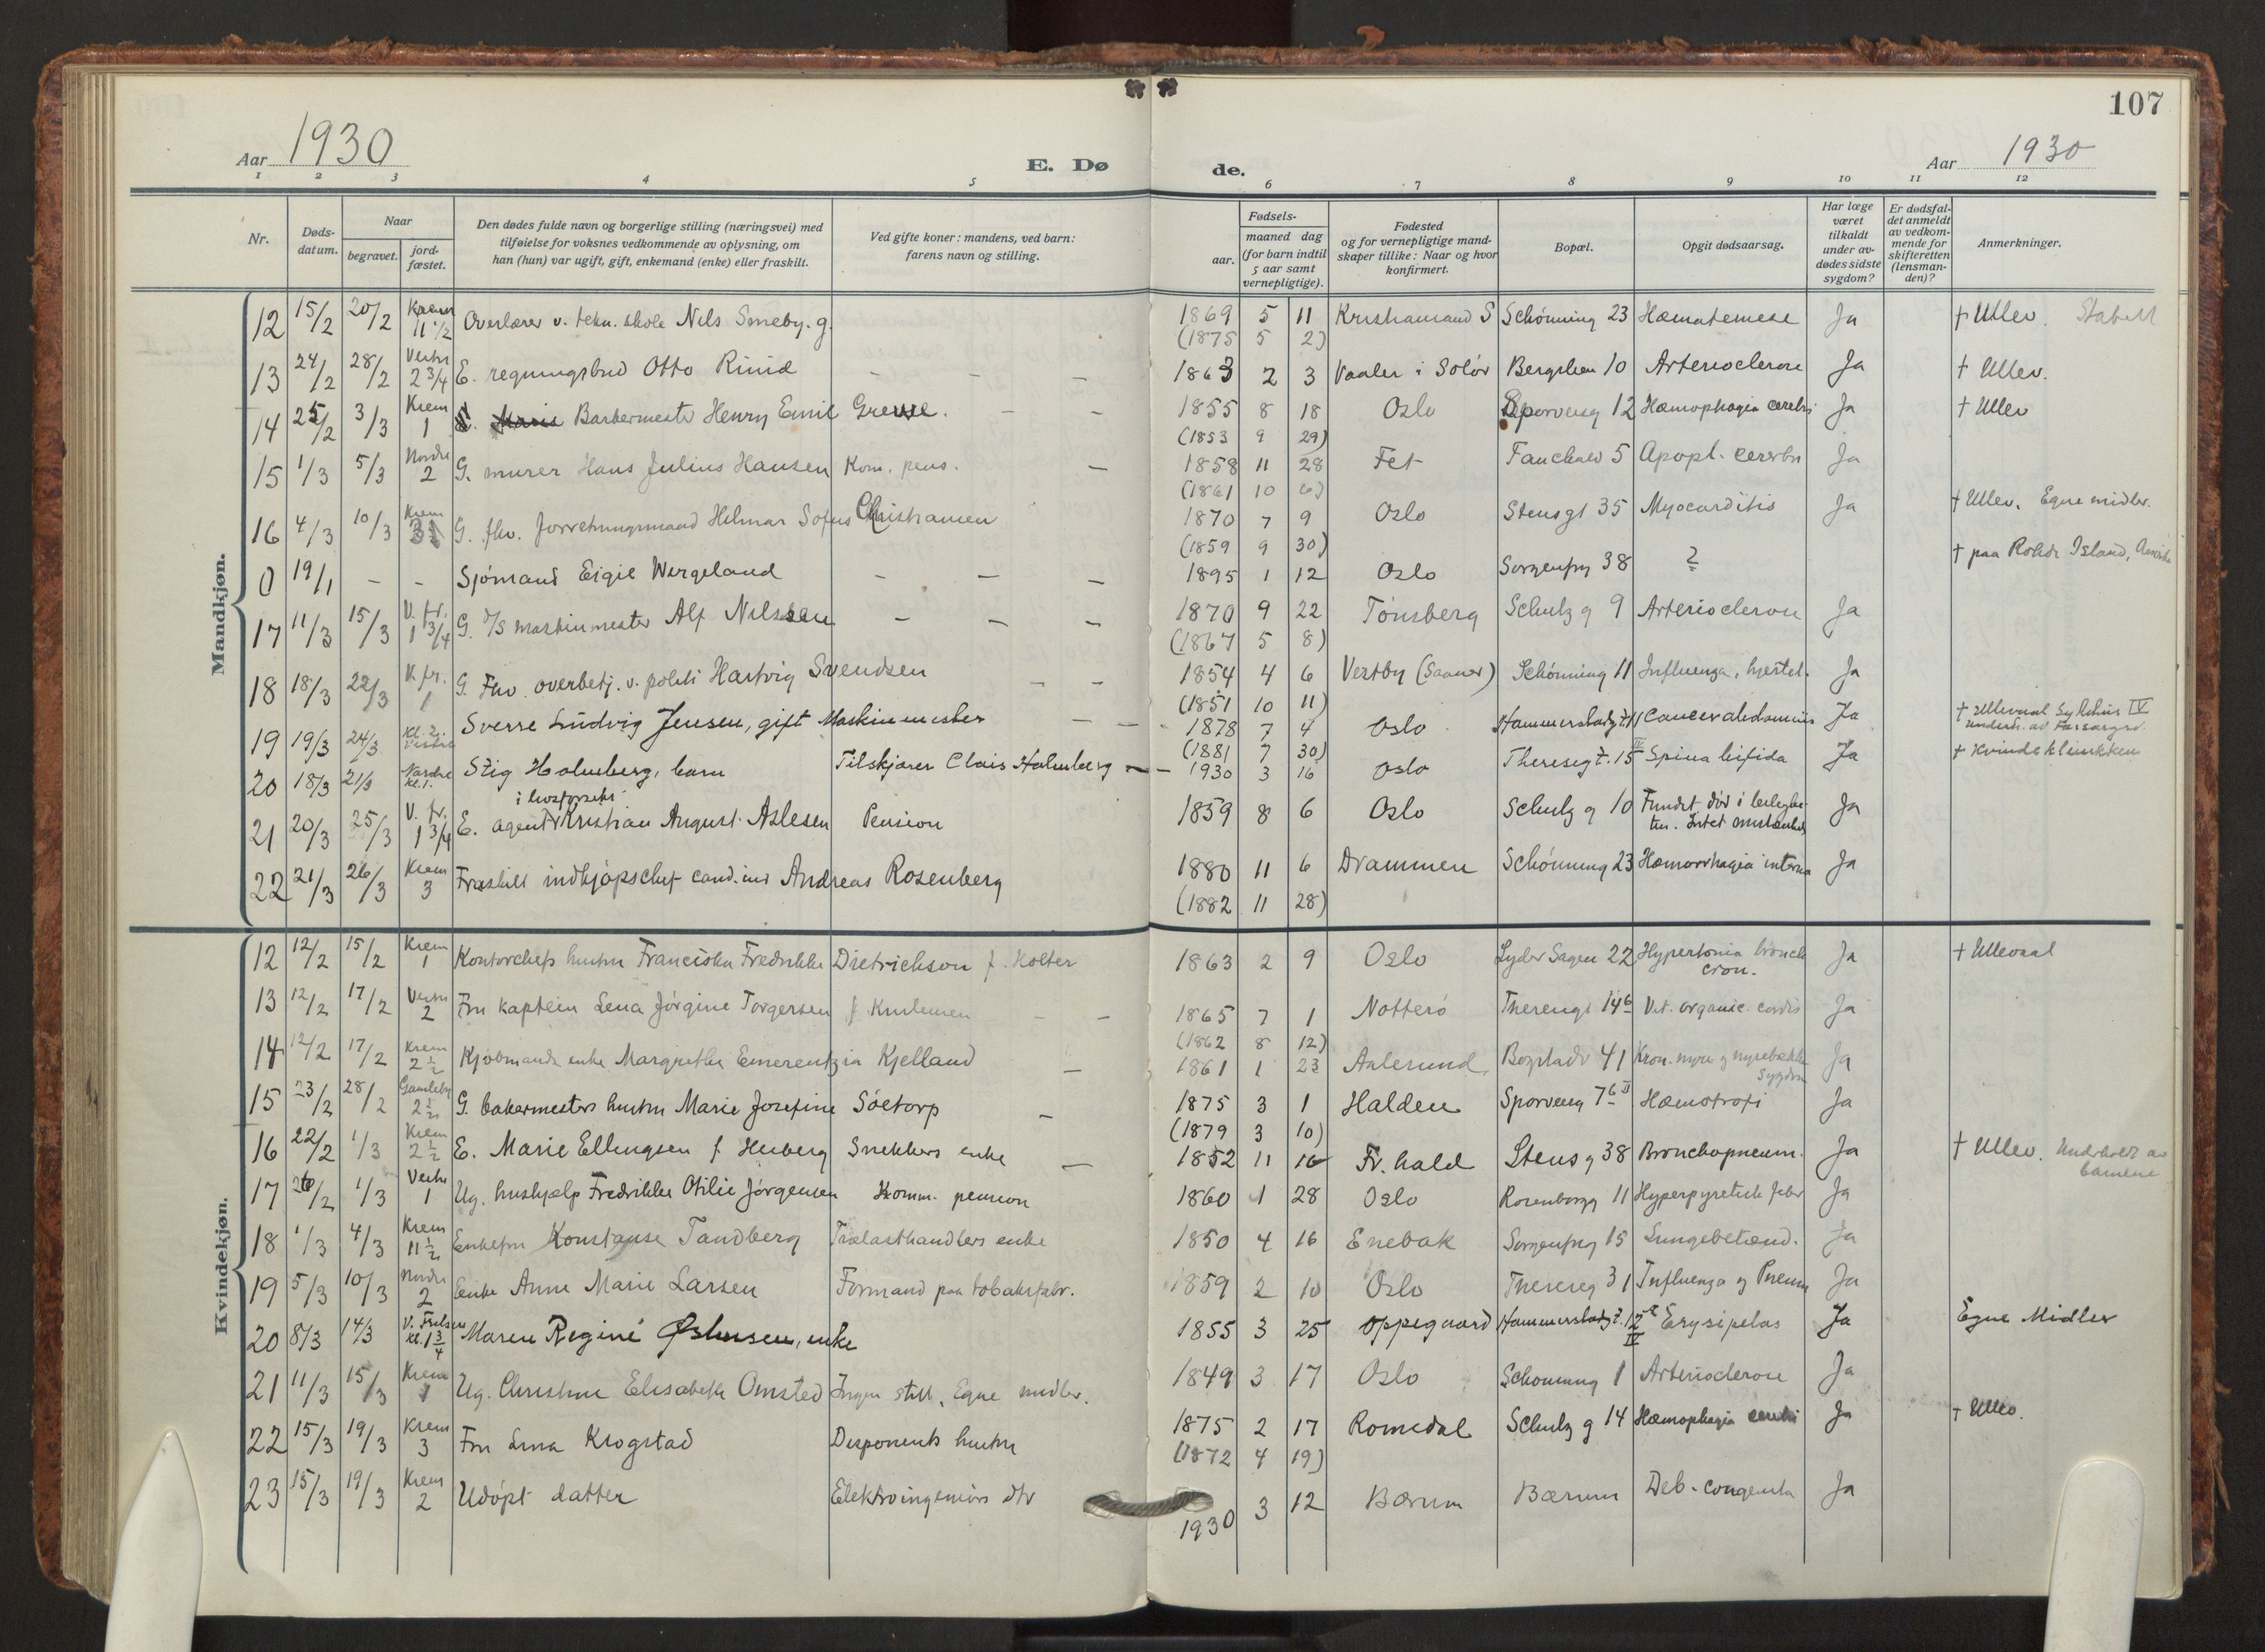 107
Aar 1930
E. Dø
de.
Aar 1930
1 2 3 4 5 6 7 8 9 10 11 12
Nr.
Døds-datum.
Naar
begravet.
jord-fæstet.
Den dødes fulde navn og borgerlige stilling (næringsvei) med
tilføielse for voksnes vedkommende av oplysning, om
han (hun) var ugift, gift, enkemand (enke) eller fraskilt.
Ved gifte koner: mandens, ved barn:
farens navn og stilling.
Fødsels-
aar.
maaned dag
(for barn indtil
5 aar samt
vernepligtige).
Fødested
og for vernepligtige mand-
skaper tillike: Naar og hvor
konfirmert.
Bopæl.
Opgit dødsaarsag.
Har læge
været
tilkaldt
under av-
dødes sidste
sygdom?
Er dødsfal-
det anmeldt
av vedkom-
mende for
skifteretten
(lensman-
den)?
Anmerkninger.
Mandkjøn.
12 15/2 20/2 Krem 11 1/2 Overlærer v. tekn. skole Nils Smeby. g. 1869 5 11 Kristiansand S Schønning 23 Hæmatemese Ja † Ullev.
(1875 5 2)
13 24/2 28/2 Vestre 2 3/4 E. regningsbud Otto Rinid – – – 1863 2 3 Vaaler i Solør Bergslien 10 Arteriosclerose Ja † Ullev.
14 25/2 3/3 Krem 1 Barbermester Henry Emil – – 1855 8 18 Oslo Sporveisg 12 Hæmophagia cerebri Ja † Ullev
(1853 9 29)
15 1/3 5/3 Nordre 2 G. murer Hans Julius Hansen Kom. pens. – 1858 11 28 Fet Fauchald 5 Apopl. cerebri Ja
(1861 10 6)
16 4/3 10/3 Krem G. fhv. forretningsmand Hilmar Sofus Christiansen 1870 7 9 Oslo Stensgt 35 Myocarditis Ja † Ullev. Egne midler.
(1859 9 30)
0 19/1 – – Sjømand Eigil Wergeland – – – 1895 1 12 Oslo Sorgenfrig 38 ? † paa Rohde Island,
17 11/3 15/3 V. fr. 1 3/4 G. D/S maskinmester Alf Nilssen – – – 1870 9 22 Tønsberg Schulz g 9 Arteriosclerose Ja
(1867 5 8)
18 18/3 22/3 V. fr. 1 G. Fhv. overbetj. v. politi Hartvig Svendsen – – 1854 4 6 Vestby (Saaner) Schønning 11 Influenza, hjertel. Ja
(1851 10 11)
19 19/3 24/3 Kl. 2. Vestre Sverre Ludvig Jensen, gift Maskinmester – – – 1878 7 4 Oslo Cancer abdominis Ja † Ullevaal Sykehus IV
underh. av Forsorgsv.
(1881 7 30)
20 18/3 21/3 Nordre Kl. 1. Stig Holmberg, barn Tilskjærer Clais Holmberg – – 1930 3 16 Oslo Theresegt. 15 IV Spina bifida Ja † Kvindeklinikken
21 20/3 25/3 V. fr. 1 3/4 E. agent i livsforsikr. Kristian August Aslesen Pension 1859 8 6 Oslo Schulz g 10 Fundet død i leilighe-
ten. Ja
22 21/3 26/3 Krem 3 Fraskilt indkjøpschef cand. Andreas Rosenberg 1880 11 6 Drammen Schønning 23 Hæmorrhagia interna Ja
(1882 11 28)
Kvindekjøn.
12 12/2 15/2 Krem 1 Kontorchefs hustru Franciska Fredrikke Dietrichson f. Holter 1863 2 9 Oslo Lyder Sagen 22 Hypertonia bronch
cron. Ja † Ullevaal
13 12/2 17/2 Vestre 2 Fru kaptein Lena Jørgine Torgersen – – 1865 7 1 Nøtterø Theresegt 14b Vit. organic. cordis Ja
(1862 8 12)
14 12/2 17/2 Krem 2 1/2 Kjøbmands enke Margrethe Emerentzia Kjelland – 1861 1 23 Aalesund Bogstadv 41 Kron. nyre g nyrebækken
sygdom Ja
15 23/2 28/2 Gamleby 2 1/2 G. bakermesters hustru Marie Josefine Søetorp – 1875 3 1 Halden Sporveisg 7b II Hæmotrofi Ja
(1879 3 10)
16 22/2 1/3 Krem 2 1/2 E. Marie Ellingsen f. Heiberg Snekkers enke – 1852 11 16 Fr. hald Stensg 38 Bronchopneum. Ja † Ullev. Underholdt av
barnene
17 26/2 1/3 Vestre 1 Ug. hushjælp Fredrikke Otilie Jørgensen Komm. pension 1860 1 28 Oslo Rosenborgg 11 Hyperpyretisk feber Ja
18 1/3 4/3 Krem 11 1/2 Enkefru Konstanse Tandberg Trælasthandlers enke 1850 4 16 Enebak Sorgenfrig 15 Lungebetænd. Ja
19 5/3 10/3 Nordre 2 Enke Anne Marie Larsen Formand paa tobaksfabr. 1859 2 10 Oslo Thereseg 31 Influenza g Pneum Ja
20 8/3 14/3 V. Frelser Kl. 1 3/4 Maren Regine enke 1855 3 25 Oppegaard Hammerstadgt. 12 IV Erysipelas Ja Egne Midler
21 11/3 15/3 Krem 1 Ug. Christine Elisabeth Omsted Ingen still. Egne midler. 1849 3 17 Oslo Schønning 1 Arteriosclerose Ja
22 15/3 19/3 Krem 3 Fru Krogstad Disponents hustru 1875 2 17 Romedal Schulz g 14 Hæmophagia cerebri Ja † Ullev.
(1872 4 19)
23 15/3 19/3 Krem 2 Udøpt datter Elektroingeniørs dtr 1930 3 12 Bærum Bærum Deb. congenita Ja